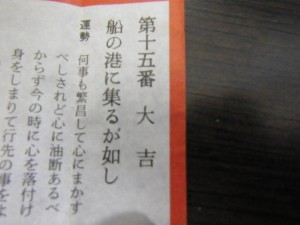 第十五番 大吉
船の港に集るが如し
運勢 何事も繁昌して心にまかす
べしされど心に油断あるべ
からず今の時に心を落付け
身をしまりて行先の事をよ